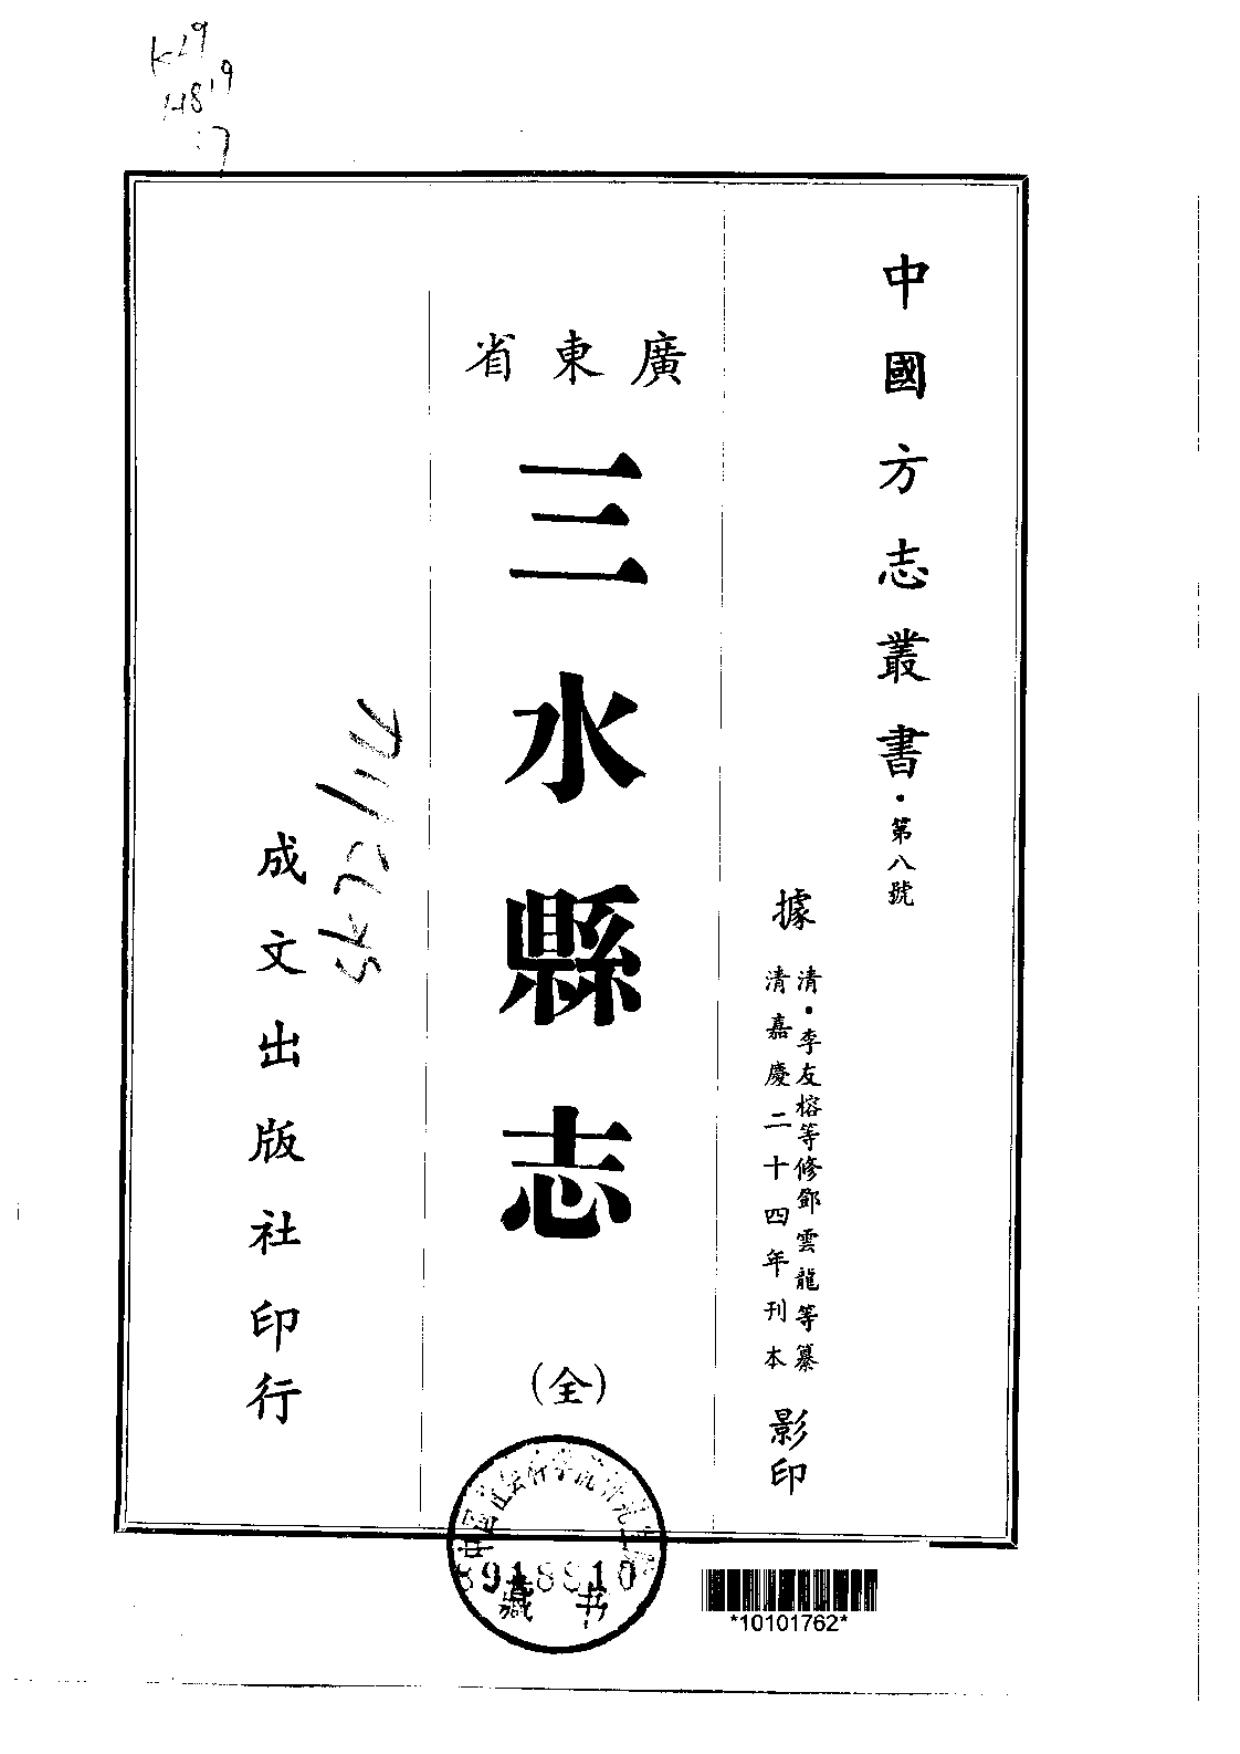 中國方志叢書·第八號
據
清·李友榕等修鄧雲龍等纂
清嘉慶二十四年刊本
影印
廣東省
三水縣志
(全)
成文出版社印行
藏书
*10101762*